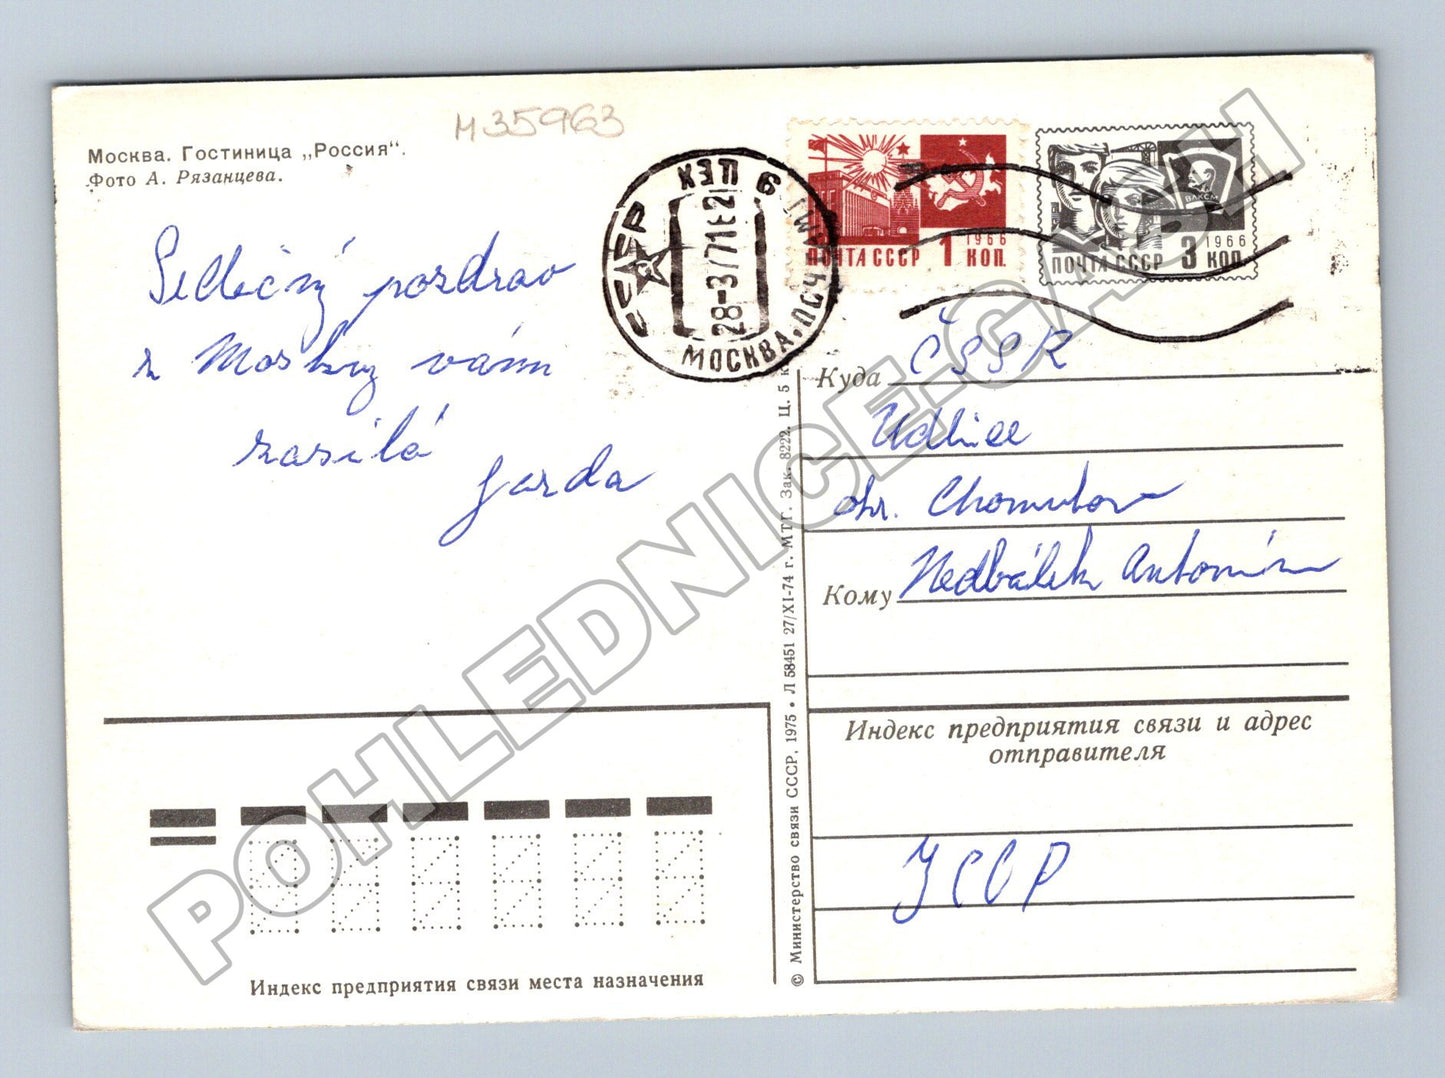 M35963
Москва. Гостиница „Россия“.
Фото А. Рязанцева.
Srdečný pozdrav
z Moskvy vám
zasílá
Jarda
СССР
ЦЕХ 6
28-3 77 16
МОСКВА
ПОЧТА СССР 1 КОП.
1966
ВЛКСМ
ПОЧТА СССР 3 КОП.
1966
Куда ČSSR
Údlice
okr. Chomutov
Кому Nedbálek Antonín
Индекс предприятия связи и адрес
отправителя
УССР
Индекс предприятия связи места назначения
© Министерство связи СССР, 1975 • Л 58451 27/XI-74 г. МТГ. Зак. 8222. Ц. 5 к.
POHLEDNICE-GASH